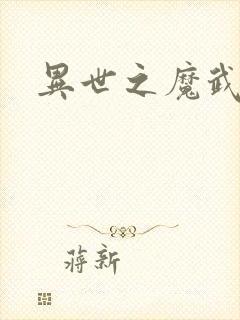 異世之魔武
蔣新